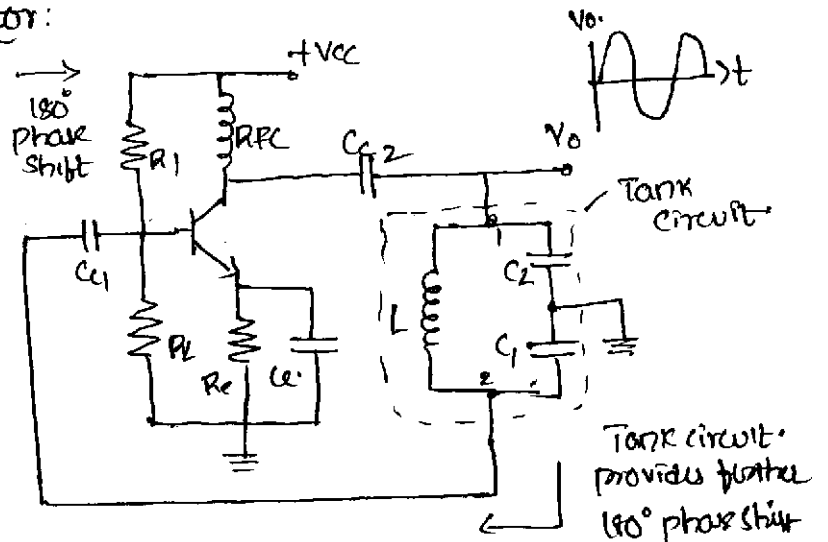 tor:
+VCC
Vo.
t
180°
phase
shift
R1
RFC
CC2
Vo
Tank
circuit.
1
CC1
C2
L
C1
R2
Re
Ce.
2
Tank circuit.
provides further
180° phase shift